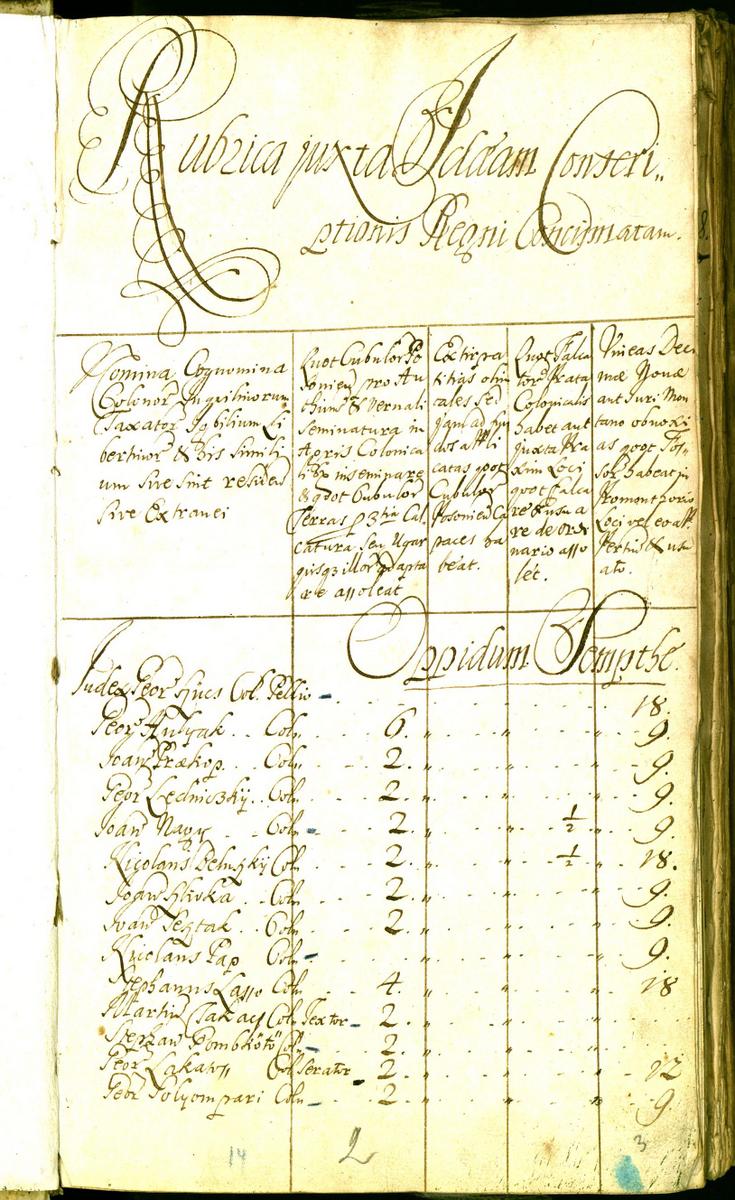 Rubrica juxta Ideam Conscri„
ptionis Regni Concinnatam.
Nomina Cognomina
Colonor Inquilinorum
Taxator Nobilium Li
bertinor & his simili
um sive sint residen
sive Extranei
Quot Cubulor Po
soniens pro Au
thumn & Vernali
seminatura in
Agris Colonica
lib inseminare
& quot Cubulor
Terras p 3tia Cal
catura seu Ugar
quisq illor adapta
re assoleat
Extirpa
titias olim
cales sed
jam ad fun
dos appli
catas quot
Cubulor
Posonien Ca
paces ha
beat.
Quot Falca
tor Prata
Colonicalia
habet aut
juxta Pra
xim Loci
quot Falca
re de ordi
nario asso
let.
Vineas Deci
mæ Nonæ
aut Juri Mon
tano obnoxi
as quot Fos
sor habeat in
Promonthorio
Loci vel eo
usu
ato.
Oppidum Sempthe.
Judex Geor Col. Pellio - 18.
Geor Coln 6. „ „ „ 9.
Joan Prækop. Coln 2. „ „ „ 9.
Geor Ledniczky Coln 2. „ „ „ 9.
Joan Nagy Coln 2. „ „ 1/2 „ 9.
Nicolaus Coln 2. „ „ 1/2 „ 18.
Joan Hlivka Coln 2. „ „ „ 9.
Ivan Coln 2. „ „ „ 9.
Nicolaus Pap Coln 9.
Stephanus Lasso Coln 4. „ „ „ 18
Martin Takacs Coln Textor 2. „ „
Stephan Gombkötö Coln 2. „ „
Geor Lakatos Col Serator 2. „ „ 12
Geor Solyompari Coln 2. „ „ „ 9.
14 2 3